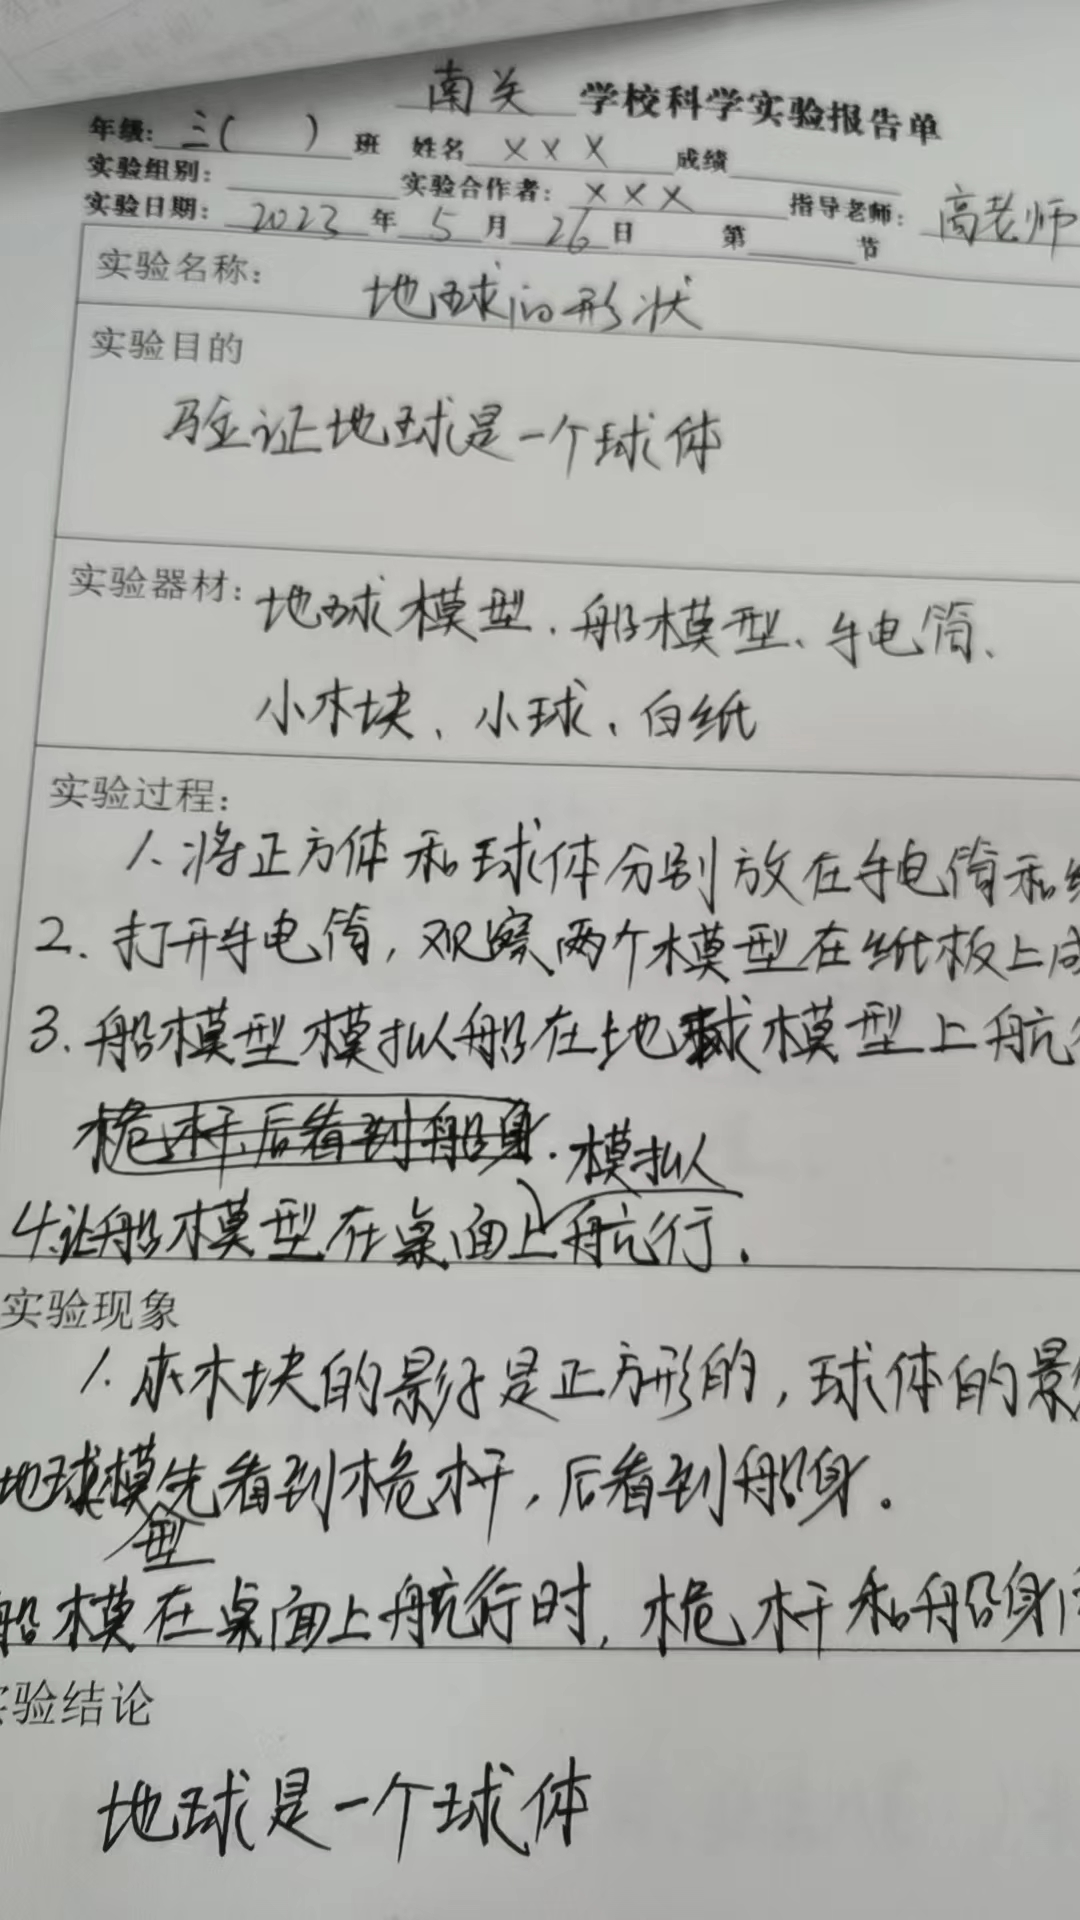 南关 学校科学实验报告单
年级: 三( ) 班 姓名 ××× 成绩
实验组别: 实验合作者: ××× 指导老师: 高老师
实验日期: 2023 年 5 月 26 日 第 节
实验名称: 地球的形状
实验目的
验证地球是一个球体
实验器材: 地球模型、船模型、手电筒、
小木块、小球、白纸
实验过程:
1、将正方体和球体分别放在手电筒和
2、打开手电筒,观察两个模型在纸板上
3、船模型模拟船在地球模型上航
桅杆,后看到船身. 模拟
4、让船模型在桌面上航行.
实验现象
1、木块的影子是正方形的,球体的影
地球模型先看到桅杆,后看到船身.
船模在桌面上航行时,桅杆和船身
实验结论
地球是一个球体